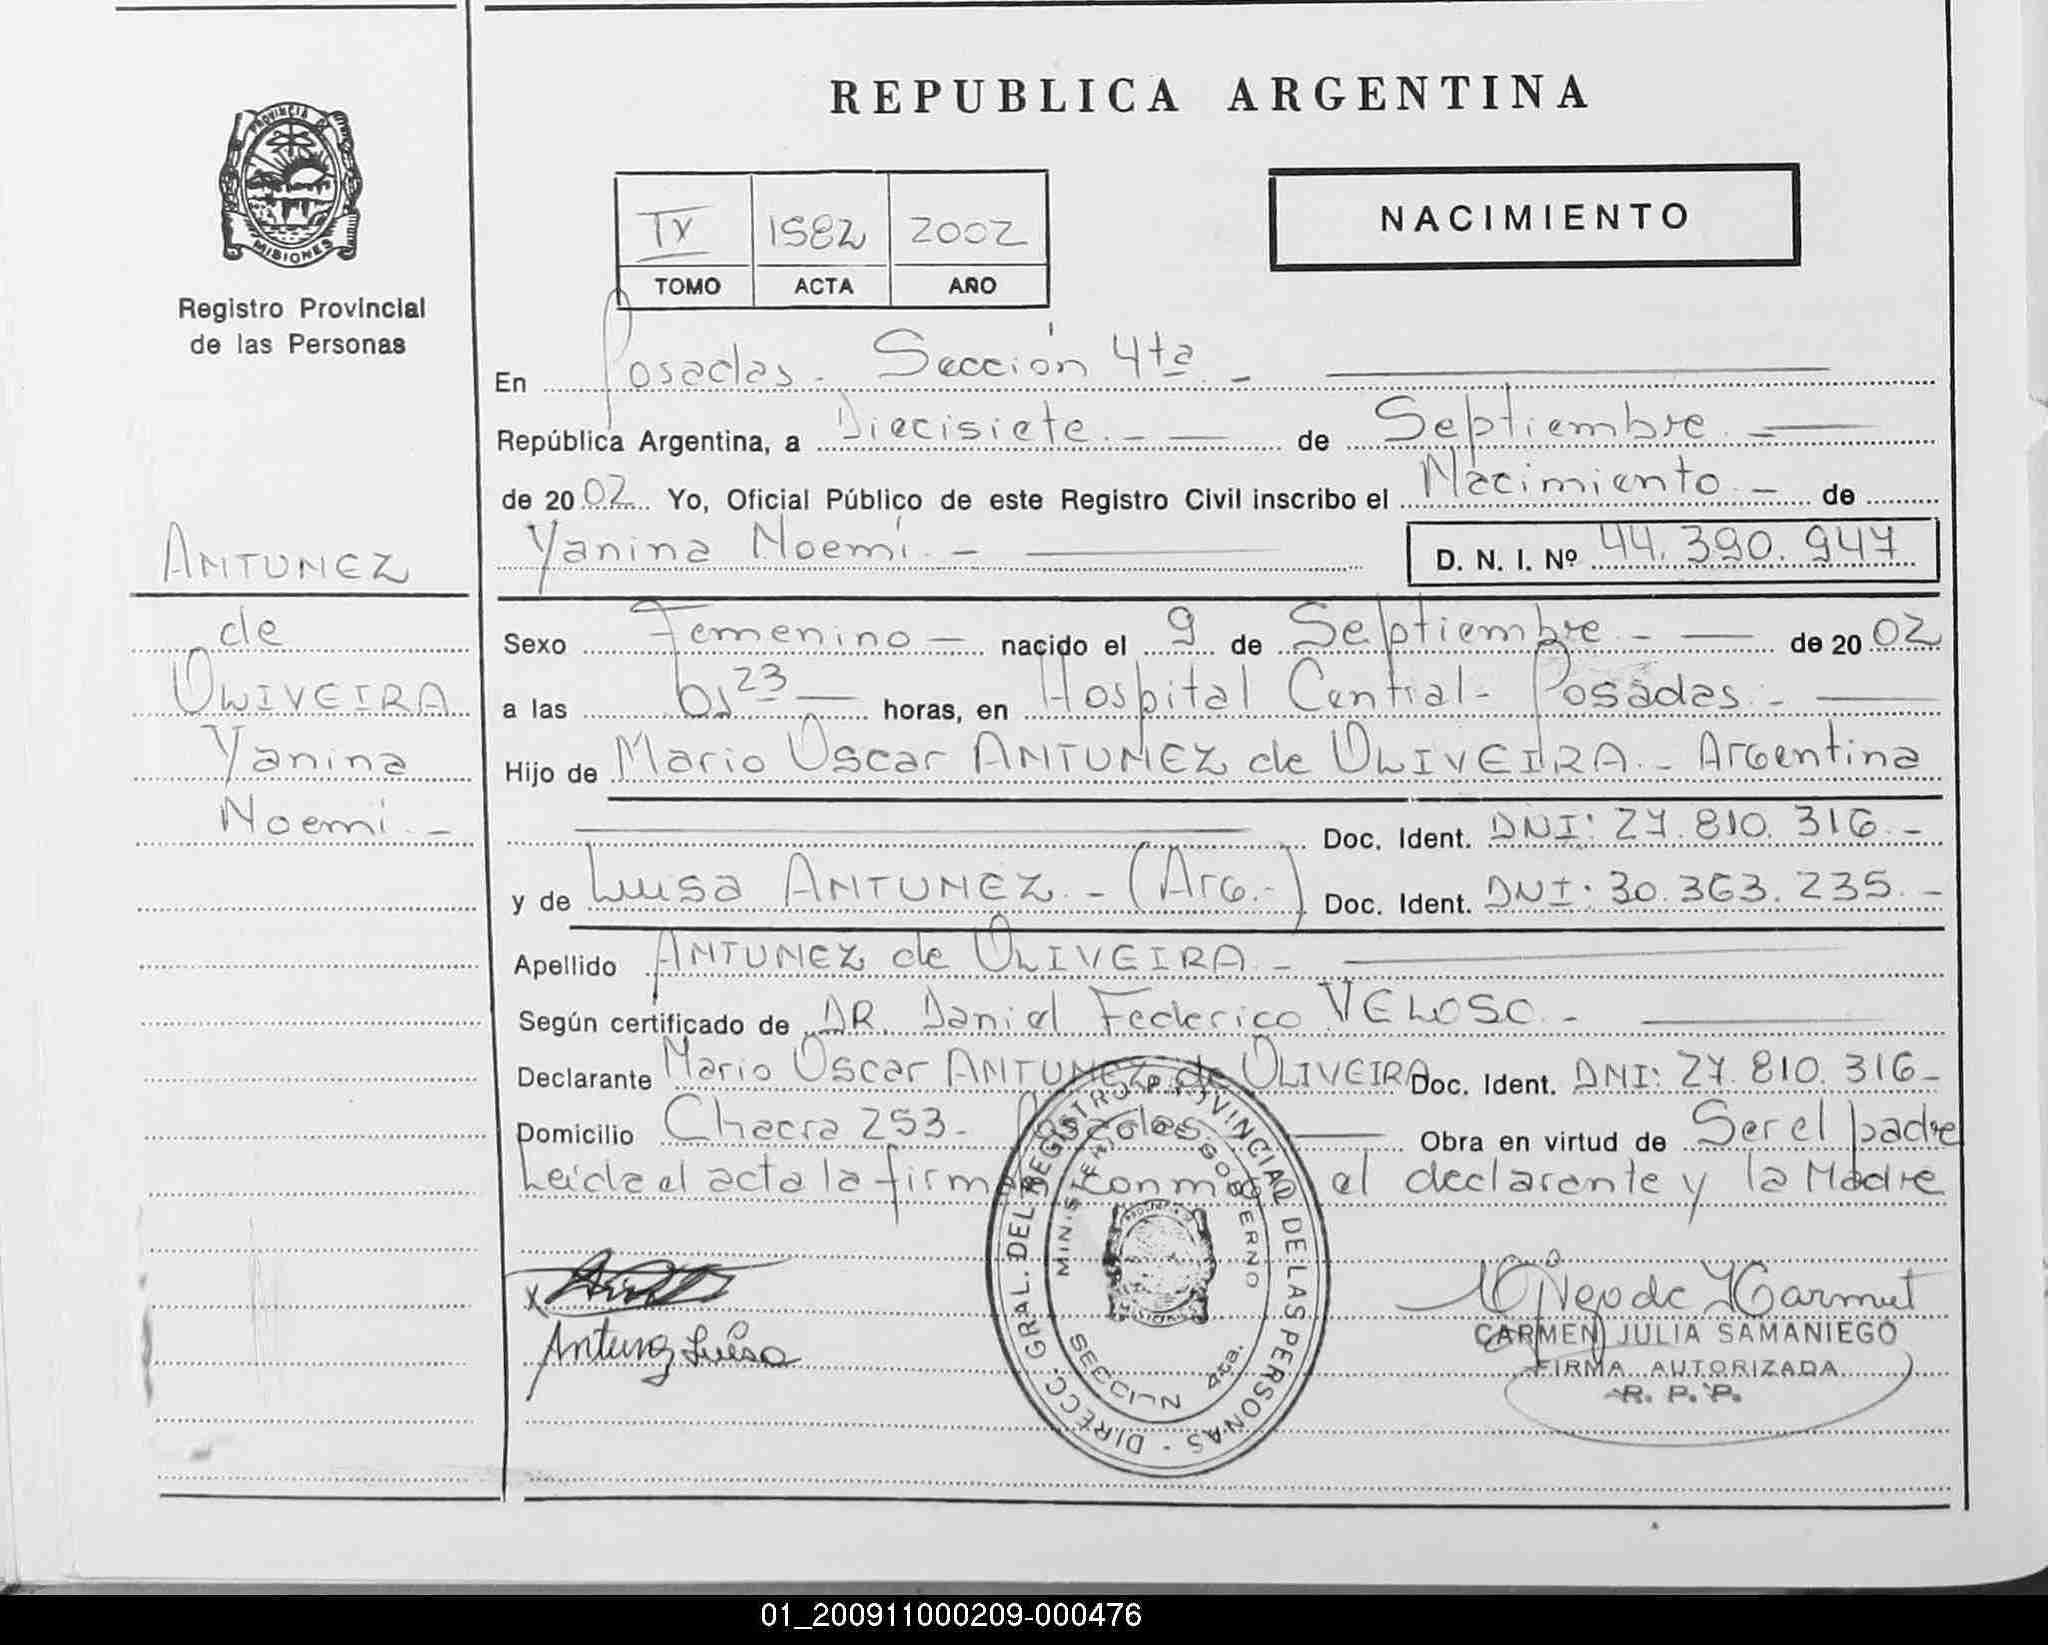 REPUBLICA ARGENTINA
PROVINCIA DE
MISIONES
Registro Provincial
de las Personas
IV 1582 2002
TOMO ACTA AÑO
NACIMIENTO
En Posadas.- Sección 4ta.-
República Argentina, a Diecisiete.- de Septiembre.-
de 2002 Yo, Oficial Público de este Registro Civil inscribo el Nacimiento.- de
Yanina Noemí.- D. N. I. Nº 44.390.947
ANTUNEZ
de
OLIVEIRA
Yanina
Noemí.-
Sexo Femenino nacido el 9 de Septiembre.- de 2002
a las 01 23 horas, en Hospital Central- Posadas.-
Hijo de Mario Oscar ANTUNEZ de OLIVEIRA.- Argentina
Doc. Ident. DNI: 27.810.316.-
y de Luisa ANTUNEZ.- (Arg.-) Doc. Ident. DNI: 30.363.235.-
Apellido ANTUNEZ de OLIVEIRA.-
Según certificado de DR. Daniel Federico VELOSO.-
Declarante Mario Oscar ANTUNEZ de OLIVEIRA Doc. Ident. DNI: 27.810.316-
Domicilio Chacra 253- Posadas Obra en virtud de Ser el padre
Leida el acta la firman conmigo el declarante y la Madre
Antunez Luisa
DIRECC. GRAL. DEL REGISTRO PROVINCIAL DE LAS PERSONAS -
MINISTERIO DE GOBIERNO
SECCION 4ta.
CARMEN JULIA SAMANIEGO
FIRMA AUTORIZADA
R. P. P.
01_200911000209-000476